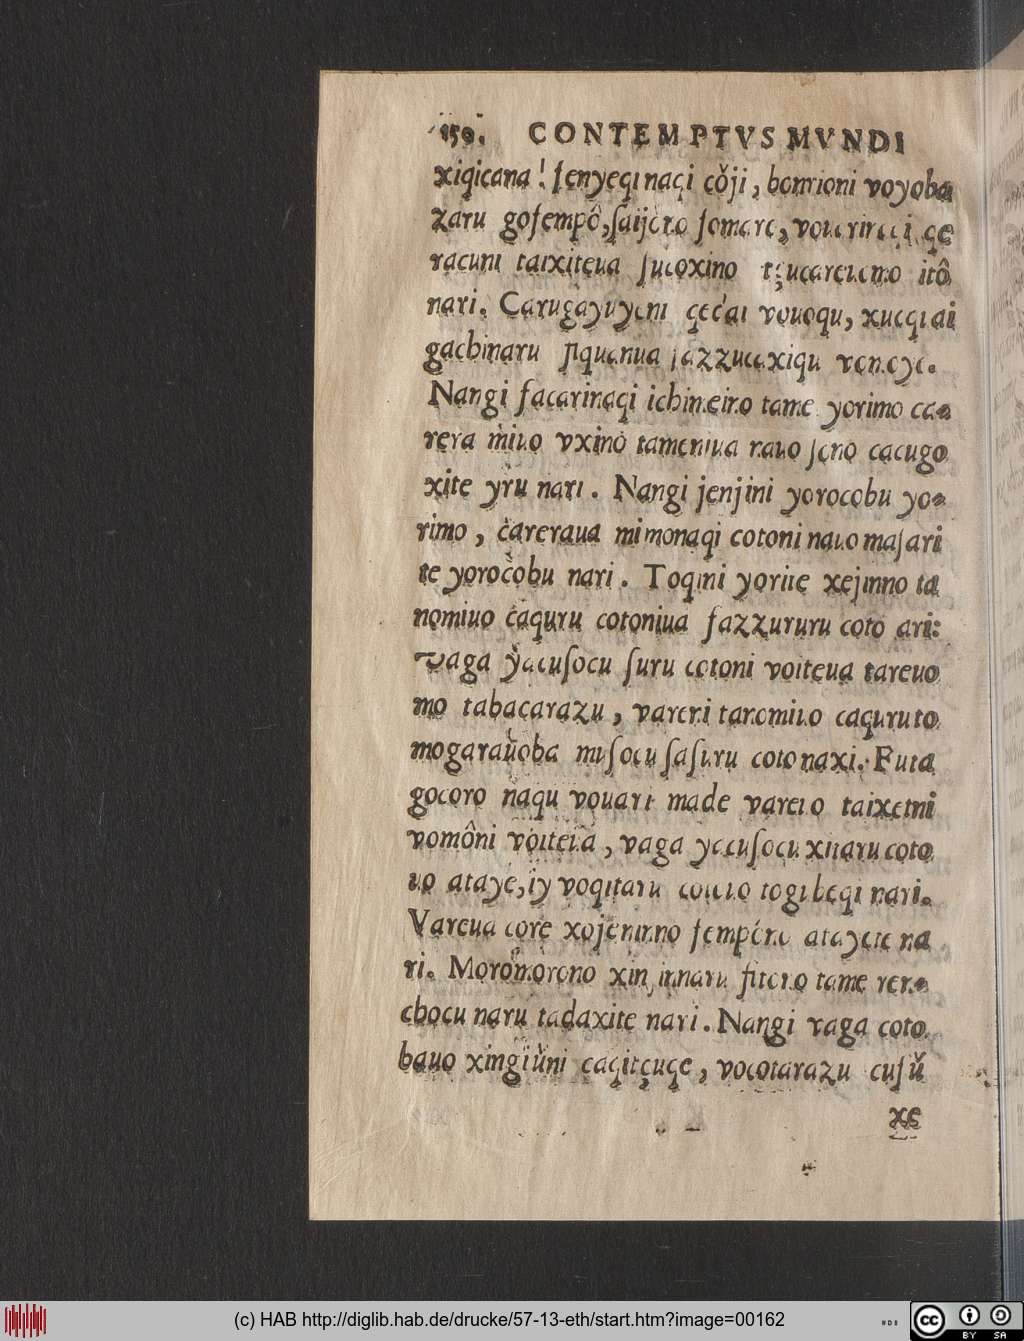 150. CONTEMPTVS MVNDI
xiqicana! ſenyeqinaqi cǒji, bonnioni voyoba
zaru goſempô, ſaijôno ſomare, qe
racuni taixiteua ſucoxino itô
nari. Carugayuyeni qecai vouoqu, xucqiai
gachinaru ſiquanua
Nangi ſacarinaqi ichineino tame yorimo ca-
rera mino vxino tameniua nauo ſono cacugo
xite yru nari. Nangi jenjini yorocobu yo-
rimo, careraua mimonaqi cotoni nauo majari
te yorocobu nari. Toqini yorite xejinno ta
nomiuo caquru cotoniua ſazzururu coto ari:
vaga yacuſocu ſuru cotoni voiteua tareuo
mo tabacarazu, vareni tanomiuo caquruto
mogarauoba muſocu ſaſuru coto naxi. Futa
gocoro naqu vouari made vareuo taixetni
vomôni voiteua, vaga yacuſocu xitaru coto
uo ataye, iy voqitaru cotouo togibeqi nari.
Vareua core xojenninno ſempôno atayete na
ri. Moromorono xinjinnaru fitouo tame ren-
chocu naru tadaxite nari. Nangi vaga coto
bauo xingiŭni caqitçuqe, vocotarazu cufŭ
xe
(c) HAB http://diglib.hab.de/drucke/57-13-eth/start.htm?image=00162
cc BY SA